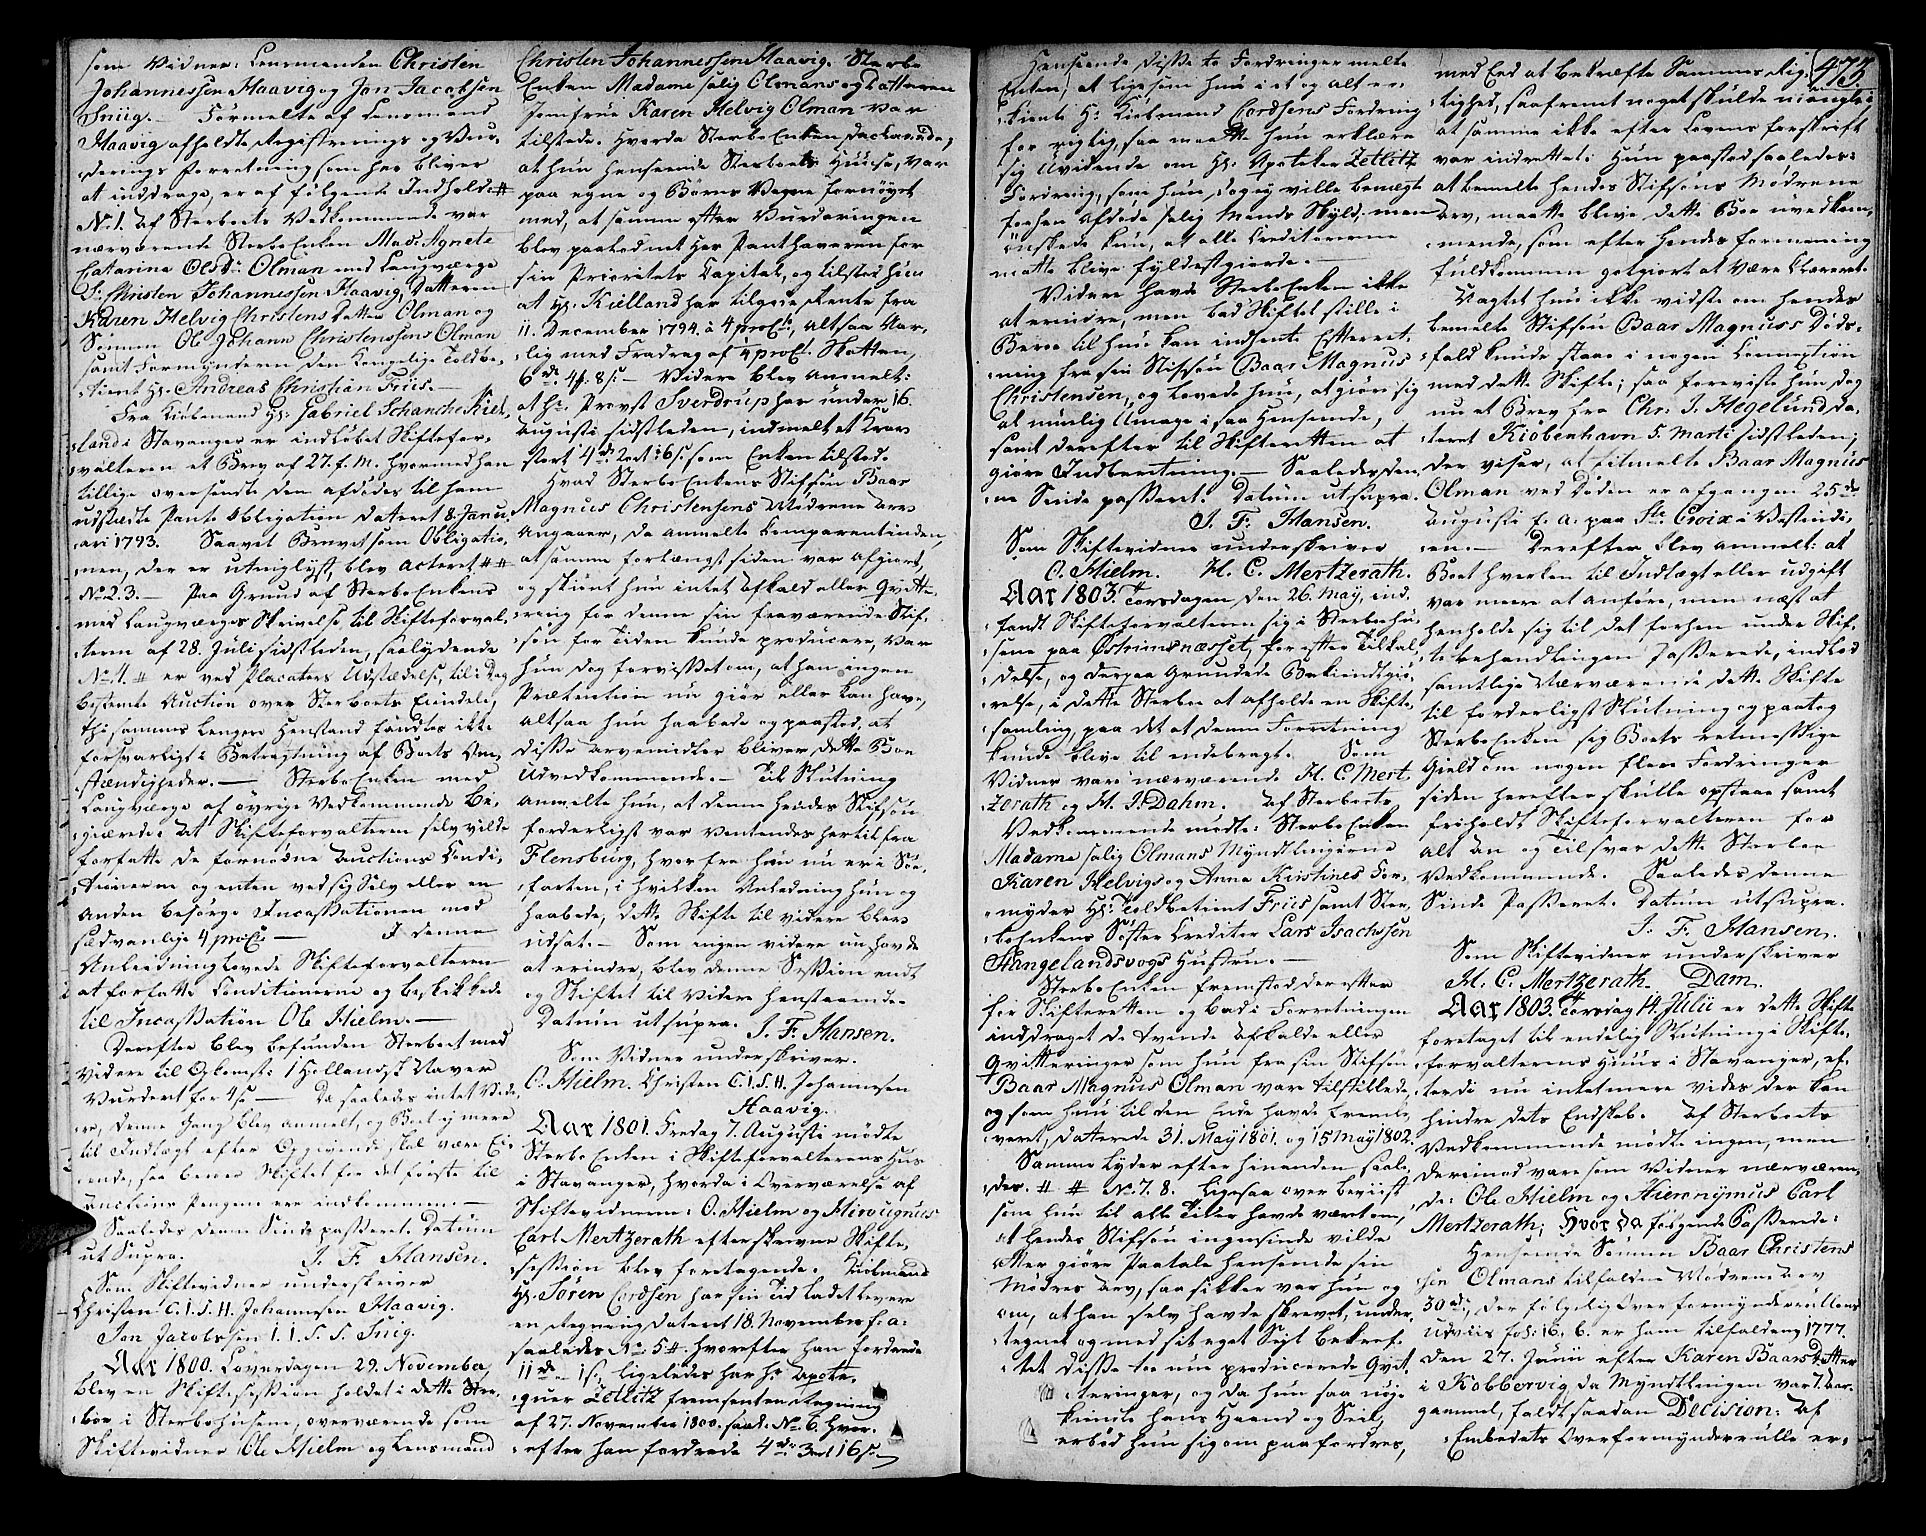 som Vidner: Lensmanden Christen
Johannessen Haavig og Jon Jacobsen
Sniig. — Formelte af Lensmand
Haavig afholdte Registrerings og Vur,
:derings Forretning som her bliver
at inddrage, er af følgende Indhold: #
No. 1. Af Sterboets Vedkommende var
nærværende SterboEnken Mad: Agnete
Catarina Olsdr. Olman med Laugværge
S: Christen Johannessen Haavig, Datteren
Karen Helvig Christens Datter Olman og
Sønnen Ole Johann Christenssens Olman
samt Formynderen den Kongelige Toldbe,
:tient Hr. Andreas Christian Fries. —
Fra Kiøbmand Hr. Gabriel Schanche Kiel,
:land i Stavanger er indløbet Skiftefor,
:valteren et Brev af 27. f. M. hvormed han
tillige oversendte den afdødes til ham
udstædte Pante Obligation dateret 8. Janu,
:ari 1793. Saavel Brevet som Obligatio,
:nen, der er utinglyst, blev acteret # #
No. 2. 3. — Paa Grund af SterboEnkens
med Laugværges Skrivelse til Skifteforval,
:teren af 28. Juli sidstleden, saalydende
No. 4. # er ved Placaters Udstædelse til i Dag
bestemte Auction over Sterboets Eiendele,
thi sammes længere Henstand fandtes ikke
forsvarligt i Betragtning af Boets Om,
:stændigheder. — SterboEnken med
Laugværge af øvrige Vedkommende be,
:giærede: At Skifteforvalteren selv vilde
forfatte de fornødne Auctions Condi,
:tionerne og enten ved sig Selv eller en
anden besørge Incassationen mod
sædvanlige 4 proCt. — I denne
Anledning lovede Skifteforvalteren
at forfatte Conditionerne og beskikkede
til Incassation Ole Hielm. —
Derefter blev befunden Sterboet med
videre til Opkomst: 1 Hollandsk Naver
Vurdert for 4 s. — Da saaledes intet vide,
:re, denne Gang blev anmelt, og Boet ej mere
til Indtægt efter Opgivende skal være Ei,
:ende, saa beroer Skiftet for det første til
Auctions Pengene ere indkommen. —
Saaledes denne Sinde passeret. Datum
ut Supra. J. F. Hansen.
Som Skiftevidner underskriver
Christen C. I. S. H. Johannesen Haavig.
Jon Jacobssen I. I. S. S. Snig.
Aar 1800. Løverdagen 29. November
blev en Skiftesession holdet i dette Ster,
:boe i Sterbohusene, overværende som
Skiftevidner Ole Hielm og Lensmand
Christen Johannessen Haavig. Sterbo
Enken Madame salig Olmans og Datteren
Jomfrue Karen Helvig Olman var
tilstede. Hvorda SterboEnken declarerede,
at hun henseende Sterboets Huuse, var
paa egne og Børns Vegne fornøyet
med, at samme efter Vurderingen
blev paakiednet her Panthaveren for
sin Prioritets Capital, og tilstod hun
at Hr. Kielland har tilgode Rente fra
11. December 1794. à 4 proCt., altsaa Aar,
:lig med Fradrag af ¼ proCt. Skatten,
6 rd. 4 ß 8 s. — Videre blev anmelt:
at Hr. Provst Sverdrup har under 16.
Augusti sidstleden, indmelt et Krav
stort 4 rd. 2 ort 16 s. som Enken tilstod.
Hvad SterboEnkens Stifsøn Baar
Magnus Christensens Mødrene Arv
angaaer, da anmelte Comparentinden,
at samme forlængst siden var afgiort,
og skiønt hun intet Afkald eller Qvitte,
:ring for denne sin fraværende Stif,
:søn for Tiden kunde producere, var
hun dog forvisset om, at han ingen
Prætention nu giør eller kan have,
altsaa hun haabede og paastod, at
disse Arvemidler bliver dette Boe
uvedkommende. — Til Slutning
anmelte hun, at denne hendes Stifsøn
forderligst var ventendes hertil fra
Flensburg, hvorfra han nu er i Søe,
:farten, i hvilken Anledning hun og
haabede, dette Skifte til videre blev
udsat. — Som ingen videre nu havde
at erindre, blev denne Session endt
og Skiftet til videre henstaaende.
Datum ut supra. J. F. Hansen.
Som Vidner underskriver.
O. Hielm. Christen C. I. S. H. Johannesen
Haavig.
Aar 1801. Fredag 7. Augusti mødte
SterboEnken i Skifteforvalterens Huus
i Stavanger, hvorda i Overværelse af
Skiftevidnerne: O. Hielm og Hirougnus
Carl Mertzerath efterskrevne Skifte,
:session blev foretagende. Kiøbmand
Hr. Søren Cordsen har sin Tid ladet levere
en Regning dateret 18. November f. a.
saaledes No. 5 # hvorefter han fordrede
11 rd. – 1 s., ligeledes har Hr. Apote,
:quer Zetlitz fremsendt en Regning
af 27. November 1800. saal: No. 6. hvor,
:efter han fordrede 4 rd. 3 ort 16 s.
Henseende disse to Fordringer melte
Enken, at ligesom hun i et og alt er,
:kiente Hr. Kiøbmand Cordsens Fordring
for rigtig, saa maatte hun erklære
sig uvidende om Hr. Apoteker Zetlitz
Fordring, som hun dog ej ville benægte
forhen afdøde salig Mands Skyld, men
ønskede kun, at alle Creditorerne
matte blive fyldestgiorde. —
Videre havde SterboEnken ikke
at erindre, men bad Skiftet stille i
Beroe til hun kan indhente Efterret,
:ning fra sin Stifsøn Baar Magnus
Christensen, og lovede hun, at giøre sig
al muelig Umage i saa Henseende,
samt derefter til Skifteretten at
giøre Indberetning. — Saaledes den,
:ne Sinde passeret. Datum ut supra.
J. F. Hansen.
Som Skiftevidner underskriver
O. Hielm. H. C. Mertzerath.
Aar 1803. Torsdagen den 26. May, ind,
:fandt Skifteforvalteren sig i Sterbohu,
:sene paa Østrimsnæsset, for efter Tilkal,
:delse, og derpaa grundede Bekiendtgiø,
:relse, i dette Sterboe at afholde en Skifte,
:samling, paa det at denne Forretning
kunde blive til endebragt. Som
Vidner vare nærværende H. C. Mert,
:zerath og H. J. Dahm. Af Sterboets
Vedkommende mødte: SterboEnken
Madame salig Olmans Myndtlingerne
Karen Helvigs og Anna Kirstines For,
:myder Hr. Toldbetient Fries samt Ster,
:boEnkens Søster Crediter Lars Isachsen
Stangelandsvogs Hustru. —
SterboEnken fremstod derefter
for Skifteretten og bad i Forretningen
inddraget de tvende Afkalde eller
Qvitteringer som hun fra sin Stifsøn
Baar Magnus Olman vare tilstillede,
og som hun til den Ende havde frembe,
:veret, daterede 31. May 1801. og 15 May 1802.
Samme lyder efter hinanden saale,
:des. # # No. 7. 8. Ligesaa overbeviist
som hun til alle Tider havde været om,
at hendes Stifsøn ingensinde vilde
eller giøre Paatale henseende sin
Mødres Arv, saa sikker var hun og
om, at han selv havde skrevet, under,
:tegnet og med sit eget Segl bekref,
:tet disse to nu producerede Qvit,
:teringer, og da hun saa nøye
kiendte hans Haand og Seil,
erbød hun sig om paafordres,
473.
med Eed at bekræfte Sammes Rig,
:tighed, saafremt noget skulde mangle i
at samme ikke efter Lovens forskrift
var indrettet: Hun paastod saaledes:
at bemelte hendes Stifsøns Mødrene
Arv, maatte blive dette Boe uvedkom,
:mende, som efter hendes formening
fuldkommen gotgiort at være Clareret.
Uagtet hun ikke vidste om hendes
bemelte Stifsøn Baar Magnuss Døds,
:fald kunde staae i nogen Connexion
med dette Skifte; saa foreviste hun dog
nu et Brev fra Chr. J. Hegelund da,
:teret Kiøbenhavn 5. Marti sidstleden;
der viser, at titmelte Baar Magnus
Olman ved Døden er afgangen 25 de
Augusti f. a. paa Ste. Croix i Vestindi,
:en. — Derefter blev anmelt: at
Boet hverken til Indtægt eller Udgift
var meere at anføre, men næst at
henholde sig til det forhen under Skif,
:tebehandlingen passerede, indlod
samtlige Nærværende dette Skifte
til forderligst Slutning og paatog
SterboEnken sig Boets retmessige
Gield om nogen flere Fordringer
siden herefter skulle opstaae samt
friholdt Skifteforvalteren for
alt An og Tilsvar dette Sterboe
Vedkommende. Saaledes denne
Sinde Passeret. Datum ut supra.
J. F. Hansen.
Som Skiftevidner underskriver
H. C. Mertzerath. Dam.
Aar 1803. Torsdag 14. Julii er dette Skifte
foretaget til endelig Slutning i Skifte,
:forvalterens Huus i Stavanger, ef,
:terdi nu intet mere vides der kan
hindre dets Endskab. Af Sterboets
Vedkommende mødte ingen, men
derimod vare som Vidner nærværen,
:de: Ole Hielm og Hieronymus Carl
Mertzerath; hvorda følgende Passerede:
Henseende Sønnen Baar Christens
sen Olmans tilfaldne Mødrene Arv
30 rd., der følgelig Overformynderrullens
Udviis fol: 16. b. er ham tilfalden 1777.
den 27. Junii efter Karen Baars Datter
i Kobbervig, da Myndtlingen var 7. Aar.
gammel, faldt saadan Decision: Af
Embedets Overformynderrulle er,